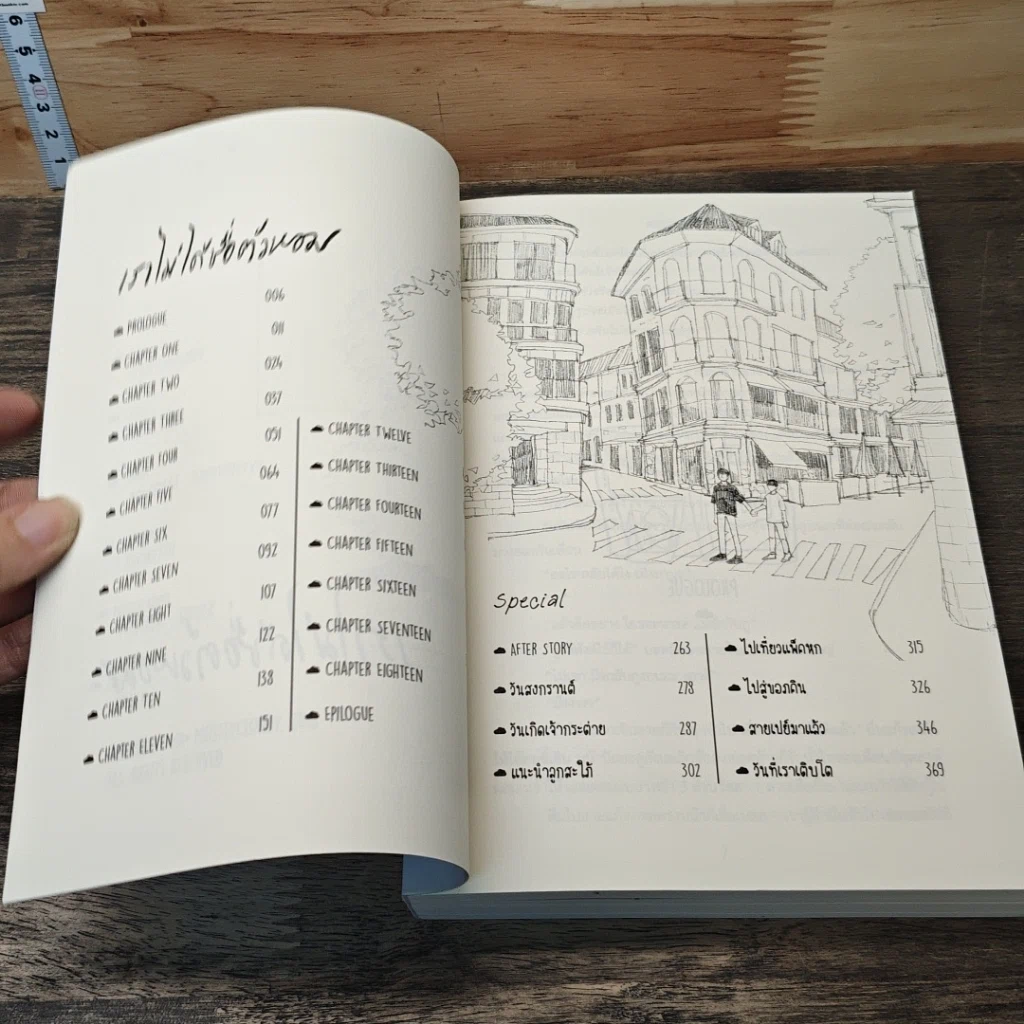 เราไม่ได้ชื่อตัวหอม
PROLOGUE 006
CHAPTER ONE 011
CHAPTER TWO 024
CHAPTER THREE 037
CHAPTER FOUR 051
CHAPTER FIVE 064
CHAPTER SIX 077
CHAPTER SEVEN 092
CHAPTER EIGHT 107
CHAPTER NINE 122
CHAPTER TEN 138
CHAPTER ELEVEN 151
CHAPTER TWELVE
CHAPTER THIRTEEN
CHAPTER FOURTEEN
CHAPTER FIFTEEN
CHAPTER SIXTEEN
CHAPTER SEVENTEEN
CHAPTER EIGHTEEN
EPILOGUE
Special
AFTER STORY 263
วันสงกรานต์ 278
วันเกิดเจ้ากระต่าย 287
แนะนำลูกสะใภ้ 302
ไปเที่ยวแพ็คหก 315
ไปสู่ขอภคิน 326
สายเปย์มาแล้ว 346
วันที่เราเติบโต 369
6 5 4 3 2 1